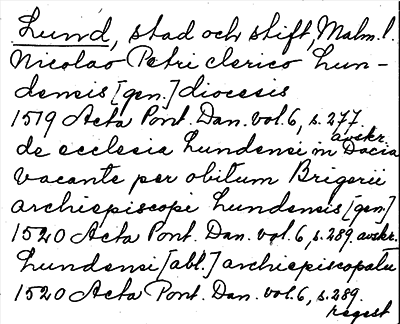 Lund, stad och stift, Malm. l.
Nicolao Petri clerico Lun-
densis [gen.] diocesis
1519 Acta Pont. Dan. vol. 6, s. 277.
avskr.
de ecclesia Lundensi in Dacia
vacante per obitum Brigerii
archiepiscopi Lundensis [gen]
1520 Acta Pont. Dan. vol. 6, s. 289. avskr.
Lundensi [abl.] archiepiscopatu
1520 Acta Pont. Dan. vol. 6, s. 289.
regest